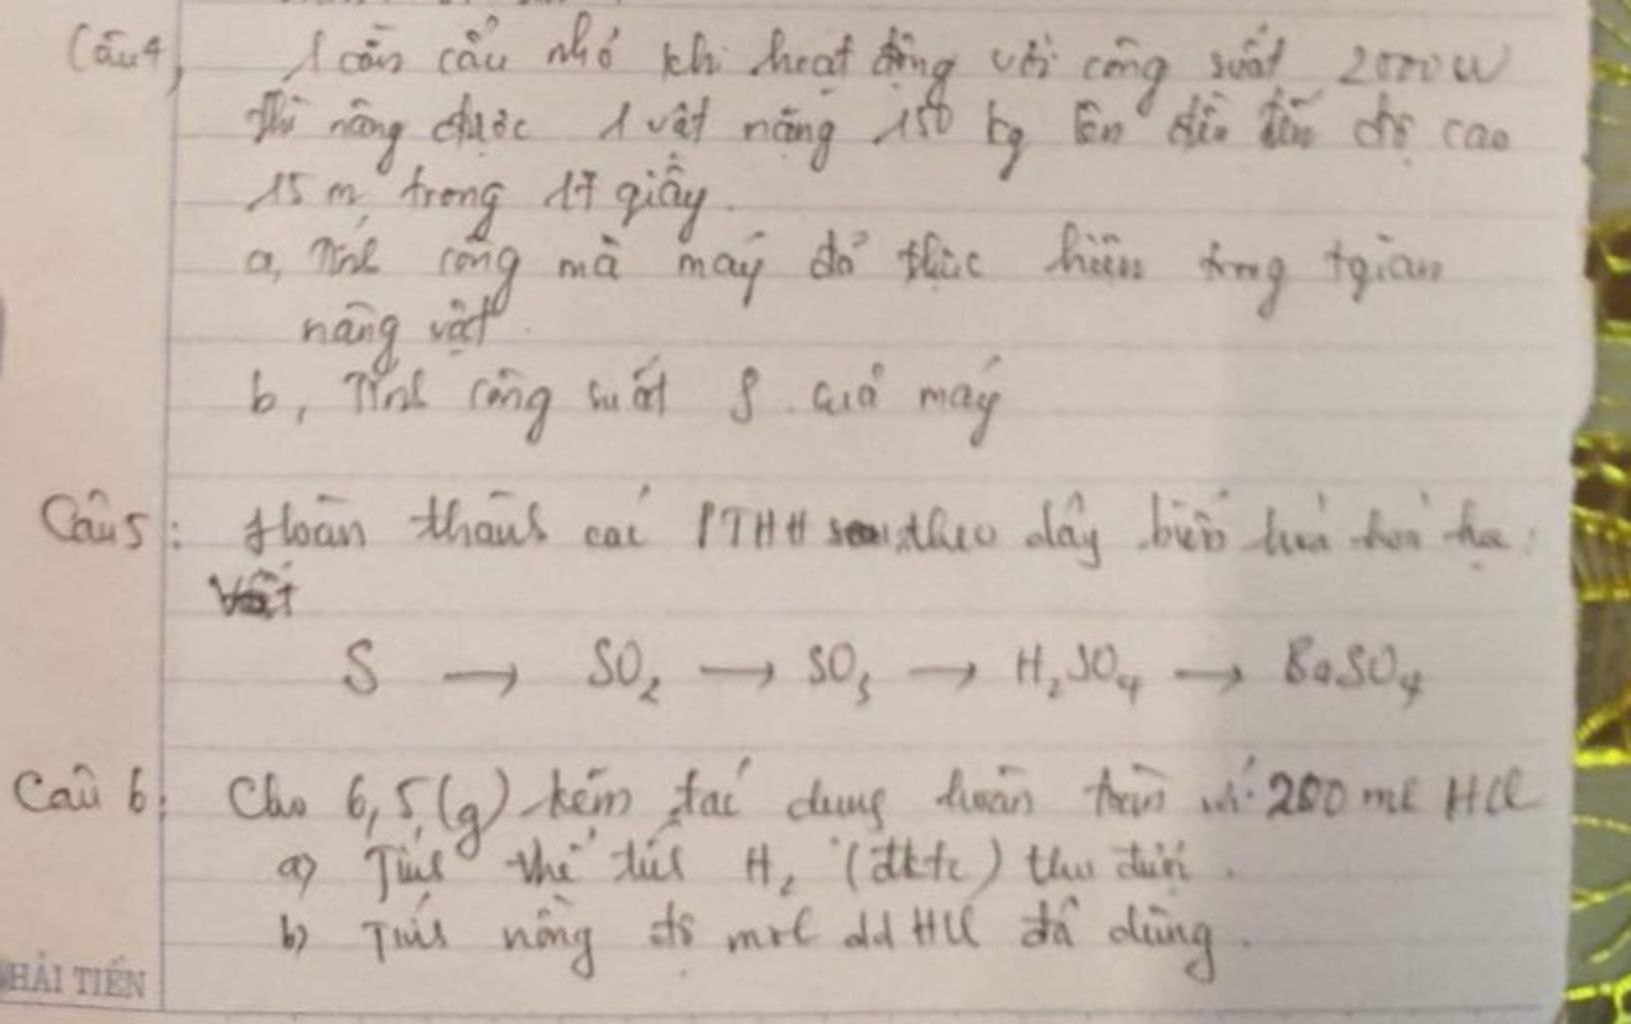 Câu 4, 1 cần cẩu nhỏ khi hoạt động với công suất 2000W
thì nâng được 1 vật nặng 150 kg lên đều đến độ cao
15 m trong 17 giây.
a, Tính công mà máy đã thực hiện trong tgian
nâng vật.
b, Tính công suất của máy
Câu 5: Hoàn thành các PTHH theo dãy biến hoá hoá học:
S → SO₂ → SO₃ → H₂SO₄ → BaSO₄
Câu 6: Cho 6,5 (g) kẽm tác dụng hoàn toàn với 200 ml HCl
a) Tính thể tích H₂ (đktc) thu được.
b) Tính nồng độ mol dd HCl đã dùng.
HẢI TIẾN